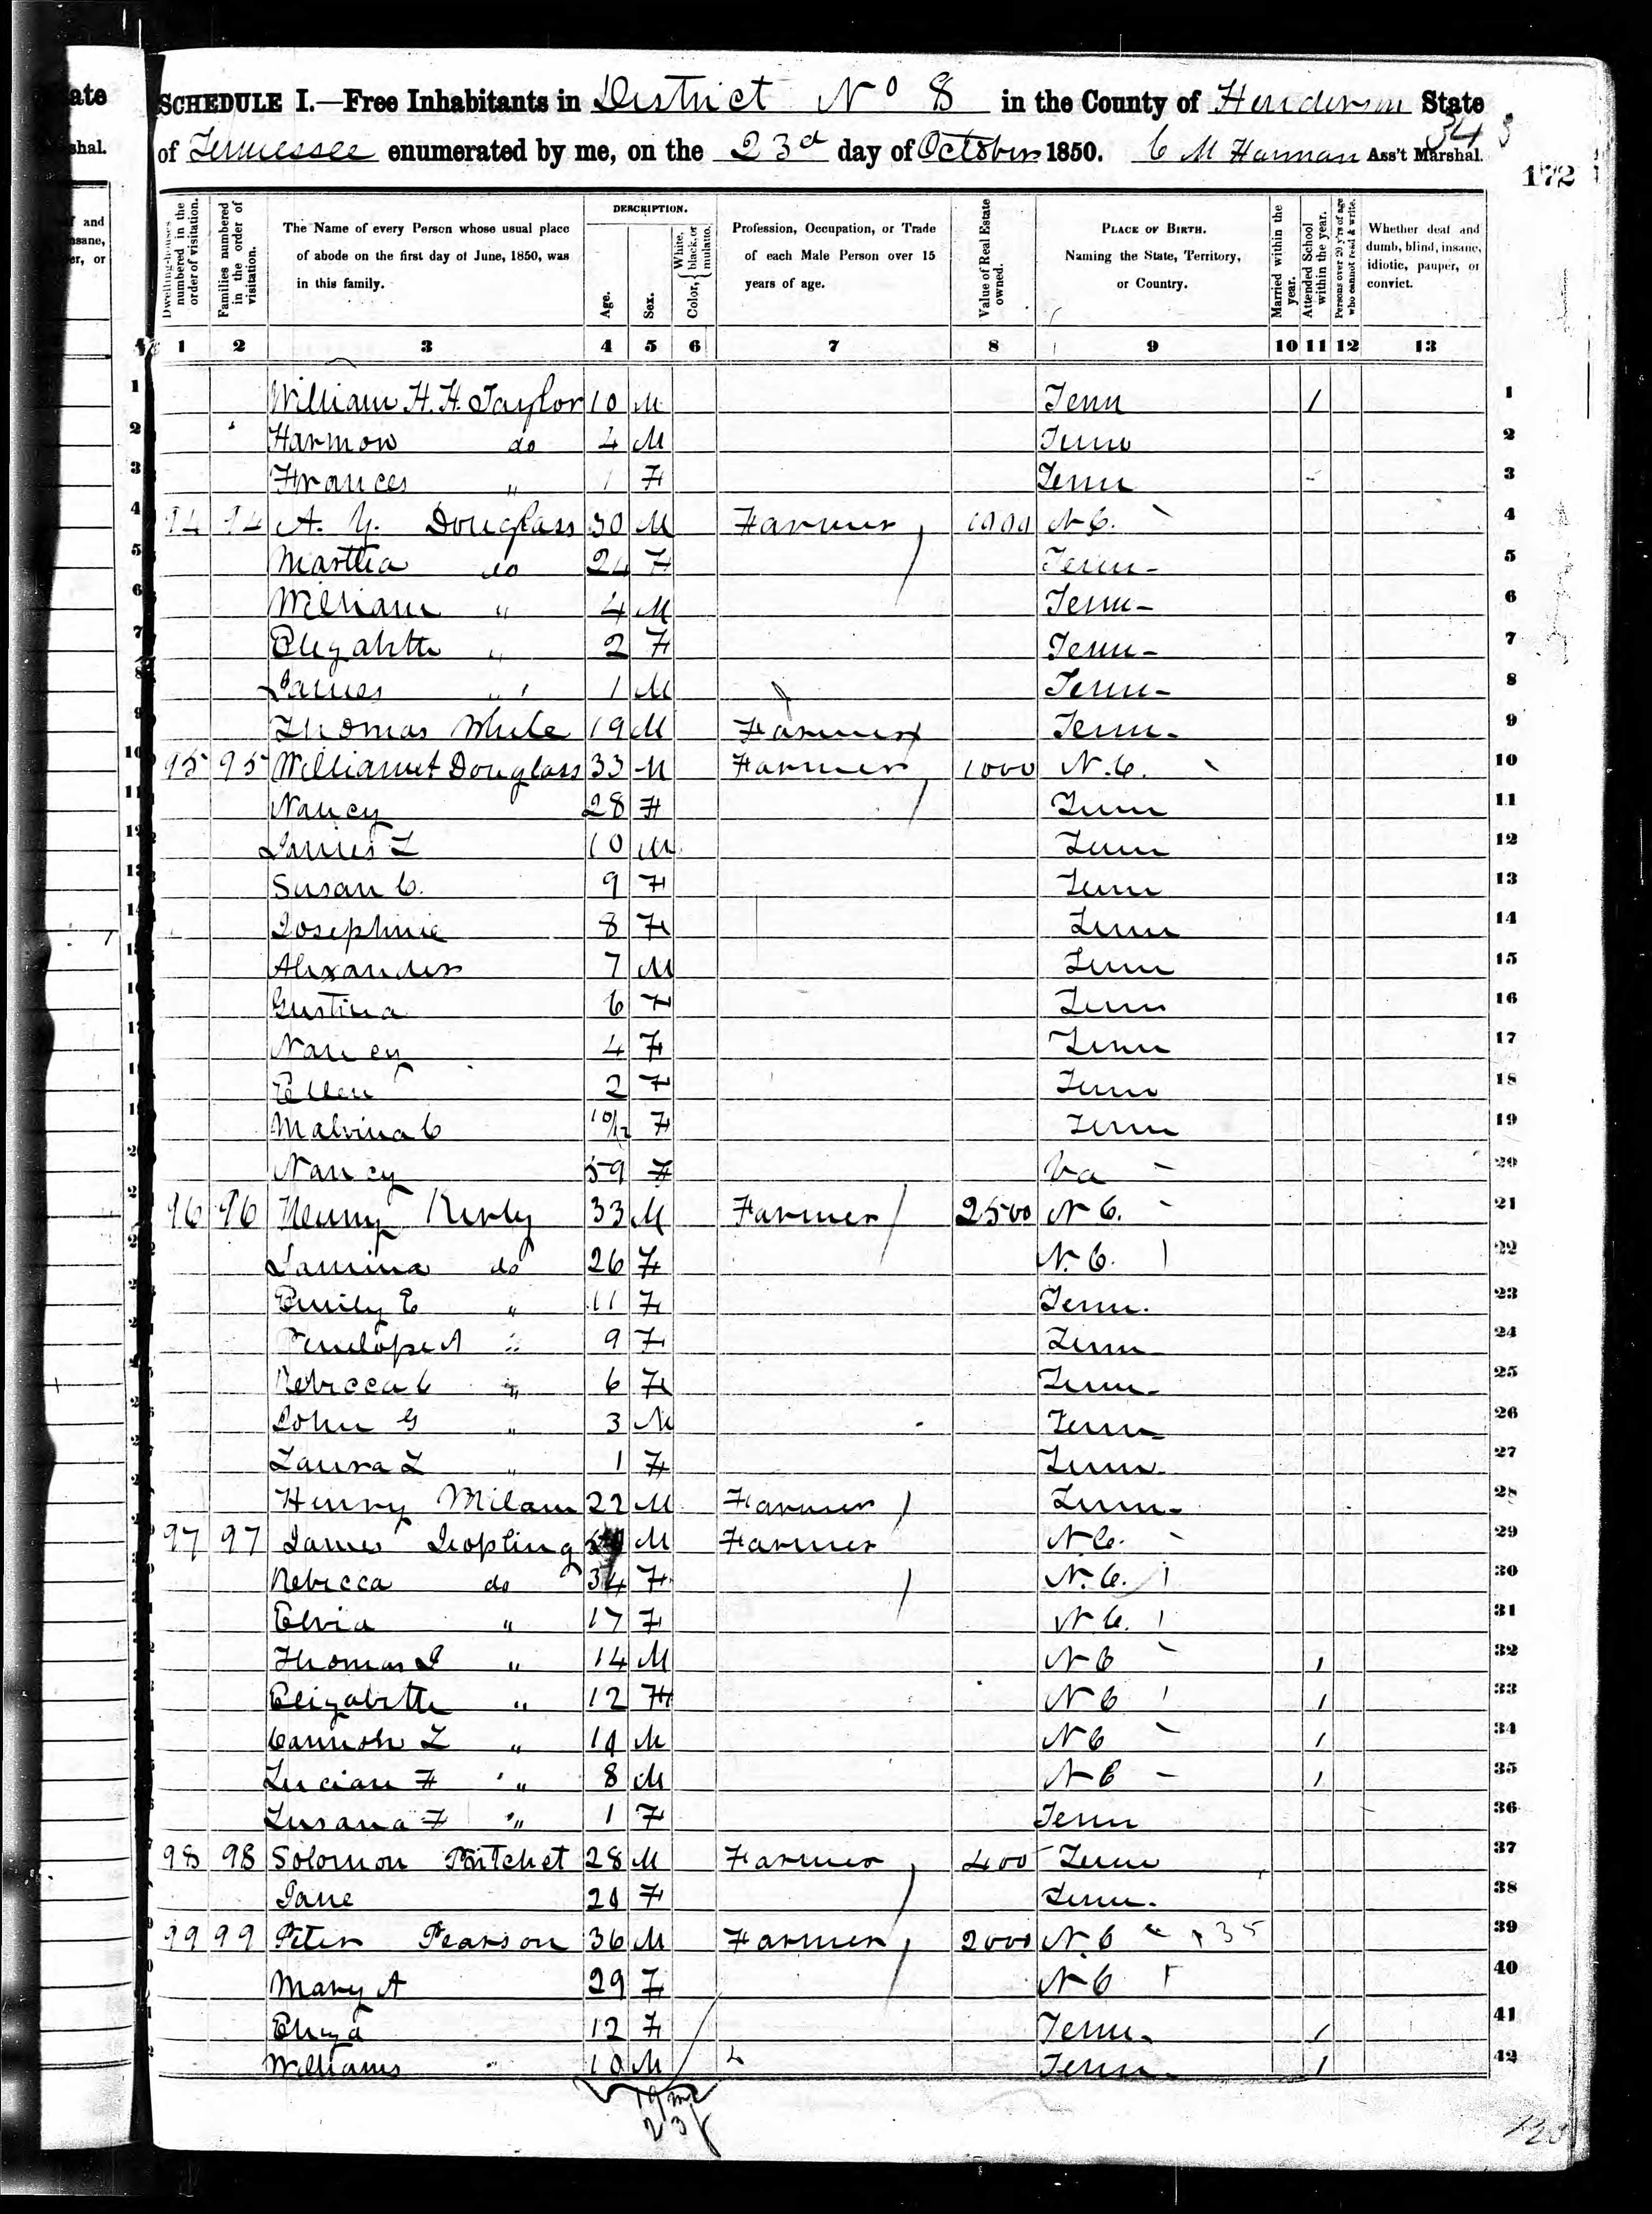 ate
shal.
f and
nsane,
er, or
SCHEDULE I.—Free Inhabitants in District No 8 in the County of Henderson State
of Tennessee enumerated by me, on the 23d day of October 1850. C M Harman Ass't Marshal.
343
172
Dwelling-houses numbered in the order of visitation.
Families numbered in the order of visitation.
The Name of every Person whose usual place of abode on the first day of June, 1850, was in this family.
DESCRIPTION.
Age.
Sex.
Color, { White, black, or mulatto.
Profession, Occupation, or Trade of each Male Person over 15 years of age.
Value of Real Estate owned.
PLACE OF BIRTH. Naming the State, Territory, or Country.
Married within the year.
Attended School within the year.
Persons over 20 y'rs of age who cannot read & write.
Whether deaf and dumb, blind, insane, idiotic, pauper, or convict.
1 2 3 4 5 6 7 8 9 10 11 12 13
1 William H. H. Taylor 10 M Tenn / 1
2 Harmon do 4 M Tenn 2
3 Frances " 1 F Tenn 3
4 94 94 A. Y. Douglass 30 M Farmer 1000 N.C. 4
5 Martha do 24 F Tenn 5
6 William " 4 M Tenn 6
7 Elizabeth " 2 F Tenn 7
8 James " 1 M Tenn 8
9 Thomas White 19 M Farmer Tenn 9
10 95 95 Douglass 33 M Farmer 1000 N.C. 10
11 Nancy 28 F Tenn 11
12 James L 10 M Tenn 12
13 Susan C. 9 F Tenn 13
14 Josephine 8 F Tenn 14
15 Alexander 7 M Tenn 15
16 Gustina 6 F Tenn 16
17 Nancy 4 F Tenn 17
18 Ellen 2 F Tenn 18
19 Malvina C 10/12 F Tenn 19
20 Nancy 59 F Va 20
21 96 96 Henry Kirby 33 M Farmer 2500 N.C. 21
do 26 F N.C. 22
Emily E " 11 F Tenn. 23
Penelope A " 9 F Tenn 24
Rebecca C " 6 F Tenn 25
John G " 3 M Tenn 26
Laura L " 1 F Tenn 27
Henry Milam 22 M Farmer Tenn 28
97 97 James M Farmer N.C. 29
Rebecca do 34 F N.C. 30
Elvia " 17 F N.C. 31
Thomas J " 14 M N C / 32
Elizabeth " 12 F N C / 33
L " M N C / 34
Lucian F " 8 M N C / 35
Susana F " 1 F Tenn 36
98 98 Solomon Pritchet 28 M Farmer 400 Tenn 37
Jane F Tenn. 38
99 99 Peter Pearson 36 M Farmer 2000 N.C 35 39
Mary A 29 F N C 40
Eliza 12 F Tenn / 41
William 10 M Tenn / 42
19 m
23 f